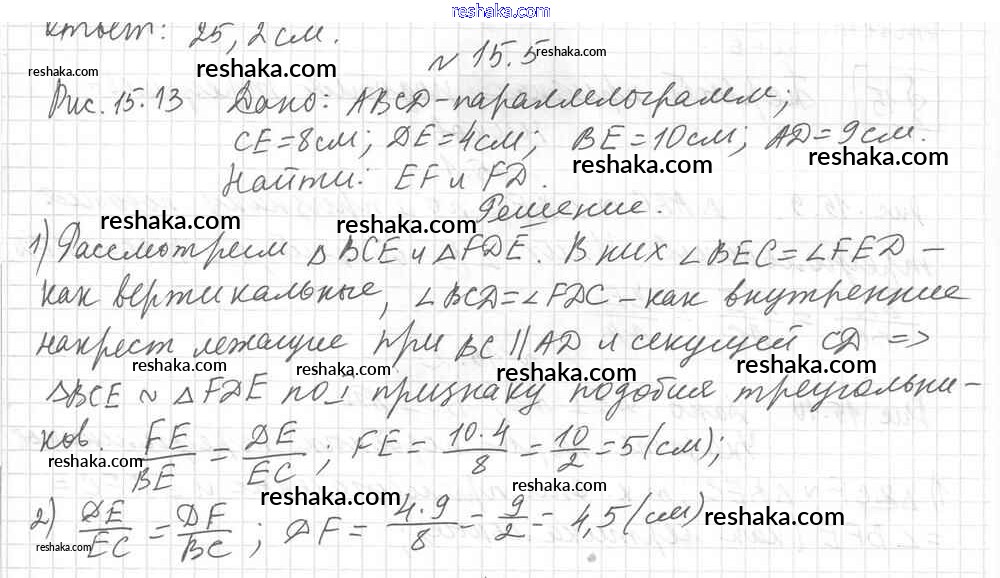 reshaka.com
Ответ: 25,2 см.
№ 15.5
reshaka.com
reshaka.com
reshaka.com
Рис. 15.13 Дано: ABCD-параллелограмм;
reshaka.com
CE=8см; DE=4см; BE=10см; AD=9см.
reshaka.com
reshaka.com
Найти: EF и FD.
reshaka.com
reshaka.com
Решение.
1) Рассмотрим ΔBCE и ΔFDE. В них ∠BEC=∠FED-
как вертикальные, ∠BCD=∠FDC-как внутренние
reshaka.com
накрест лежащие при BC||AD и секущей CD =>
reshaka.com
reshaka.com
reshaka.com
ΔBCE ~ ΔFDE по 1 признаку подобия треугольни-
ков. FE/BE = DE/EC; FE = 10·4/8 = 10/2 = 5 (см);
reshaka.com
reshaka.com
reshaka.com
2) DE/EC = DF/BC; DF = 4·9/8 = 9/2 = 4,5 (см)
reshaka.com
reshaka.com
reshaka.com